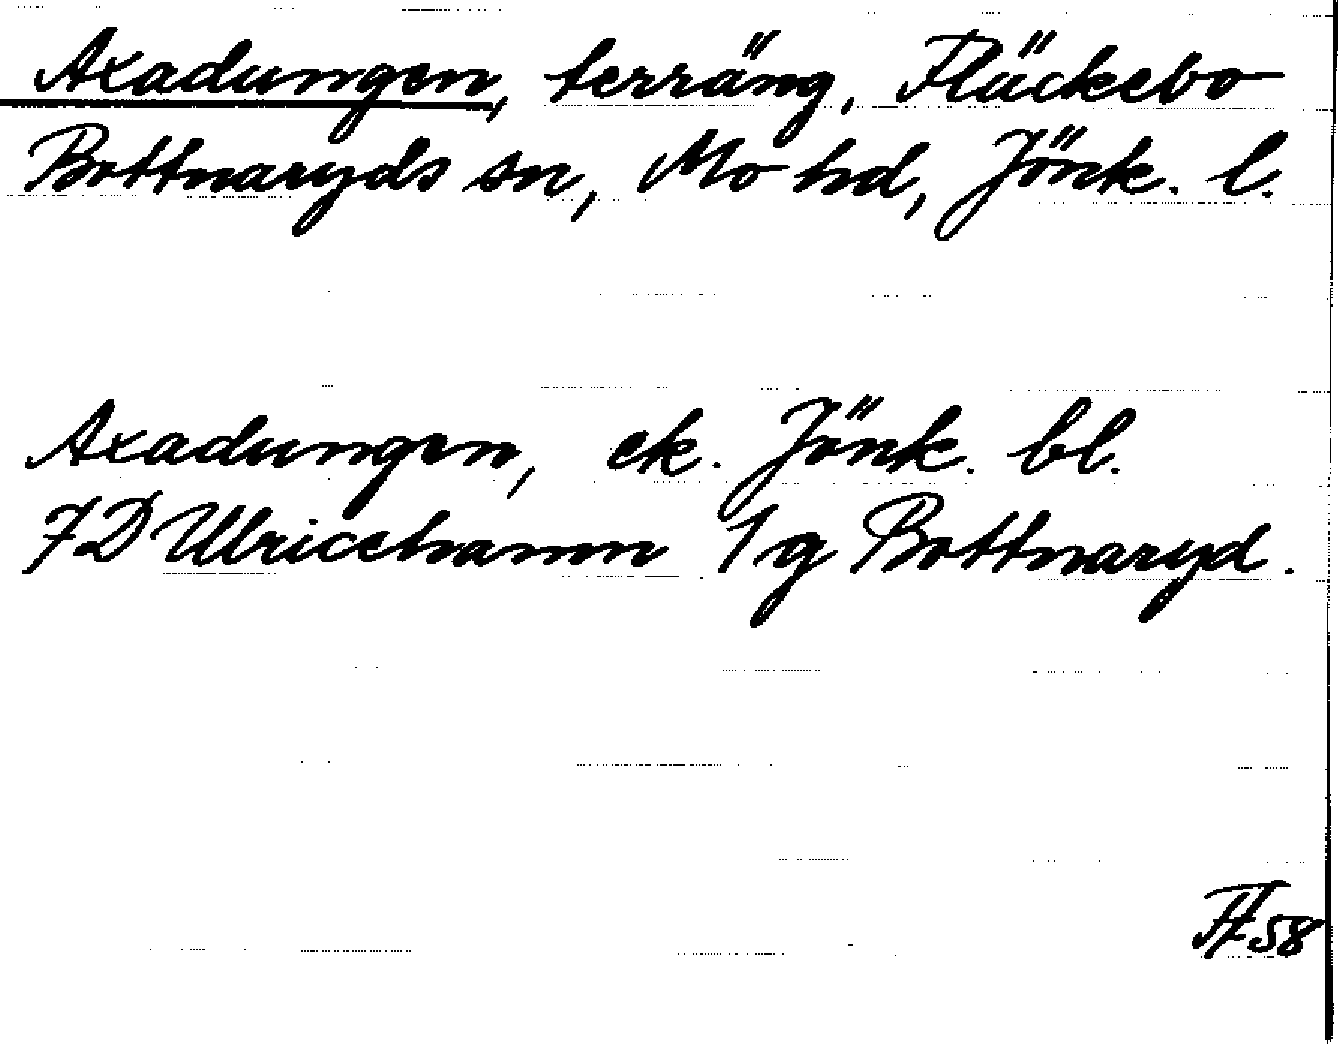 Axadungen, terräng, Fläckebo
Bottnaryds sn, Mo hd, Jönk. l.
Axadungen, ek. Jönk. bl.
7D Ulricehamn 1 g Bottnaryd.
58